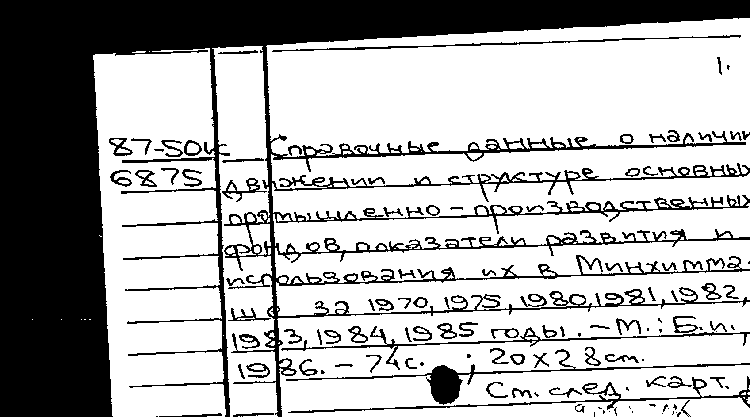 1.
87-50к Справочные данные о наличии
6875 движении и структуре основных
промышленно-производственных
фондов, показатели развития и
использования их в Минхимма-
ше за 1970, 1975, 1980, 1981, 1982,
1983, 1984, 1985 годы. - М.: Б.и.,
1986. - 74с. ; 20х28см.
См. след. карт.